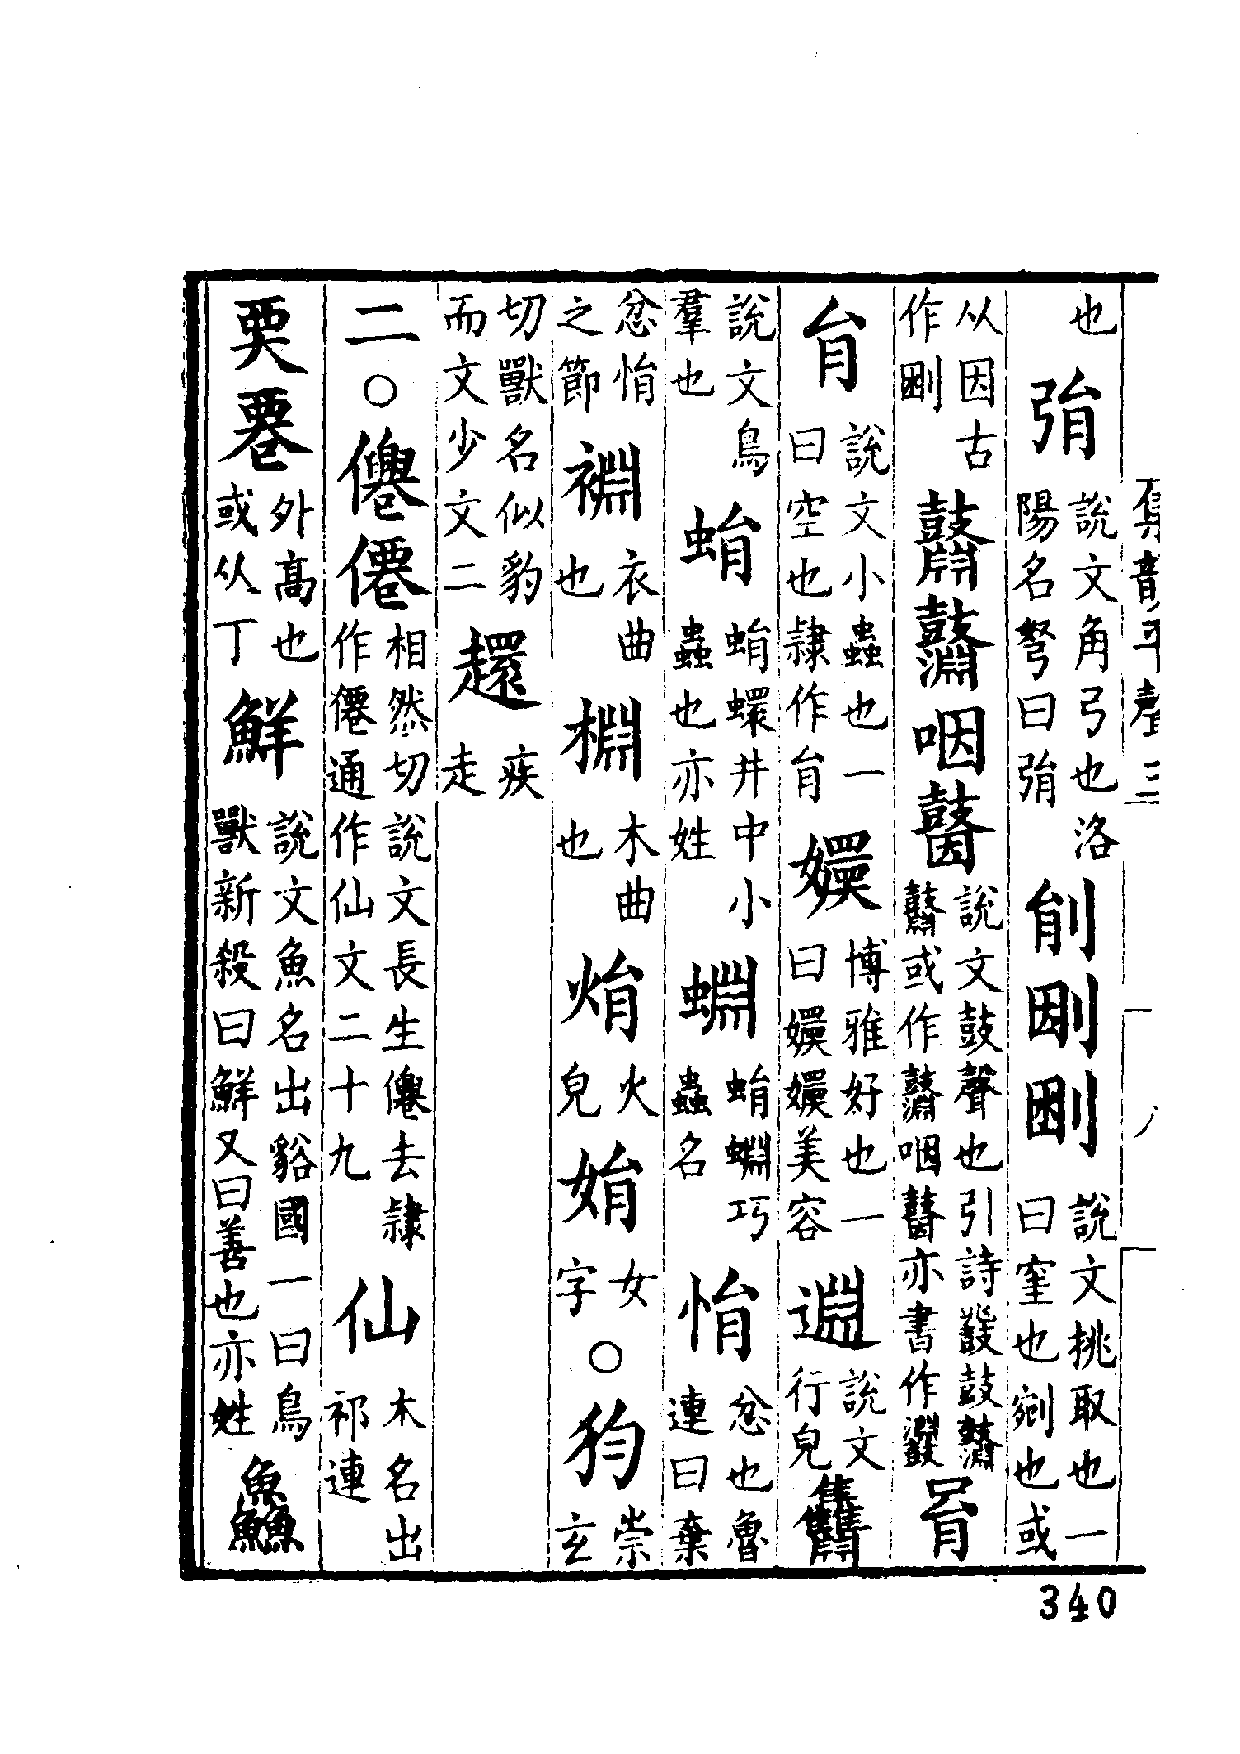 集韻平聲三
也弲說文角弓也洛陽名弩曰弲剈說文挑取也一曰窐也剜也或
从因古作鼘咽說文鼓聲也引詩鼓或作咽亦書作
肙說文小蟲也一曰空也隸作肙嬽博雅好也一曰嬽嬽美容說文行皃
說文鳥羣也蜎蜎蠉井中小蟲也亦姓蜵蜎蜵巧蟲名悁忿也魯連曰棄
忿悁之節衣曲也棩木曲也焆火皃娟女字○崇玄
切獸名似豹而文少文二還疾走
二○僊相然切說文長生僊去隸作僊通作仙文二十九仙木名出祁連
䙴升高也或从鮮說文魚名出貉國一曰鳥獸新殺曰鮮又曰善也亦姓鱻
340